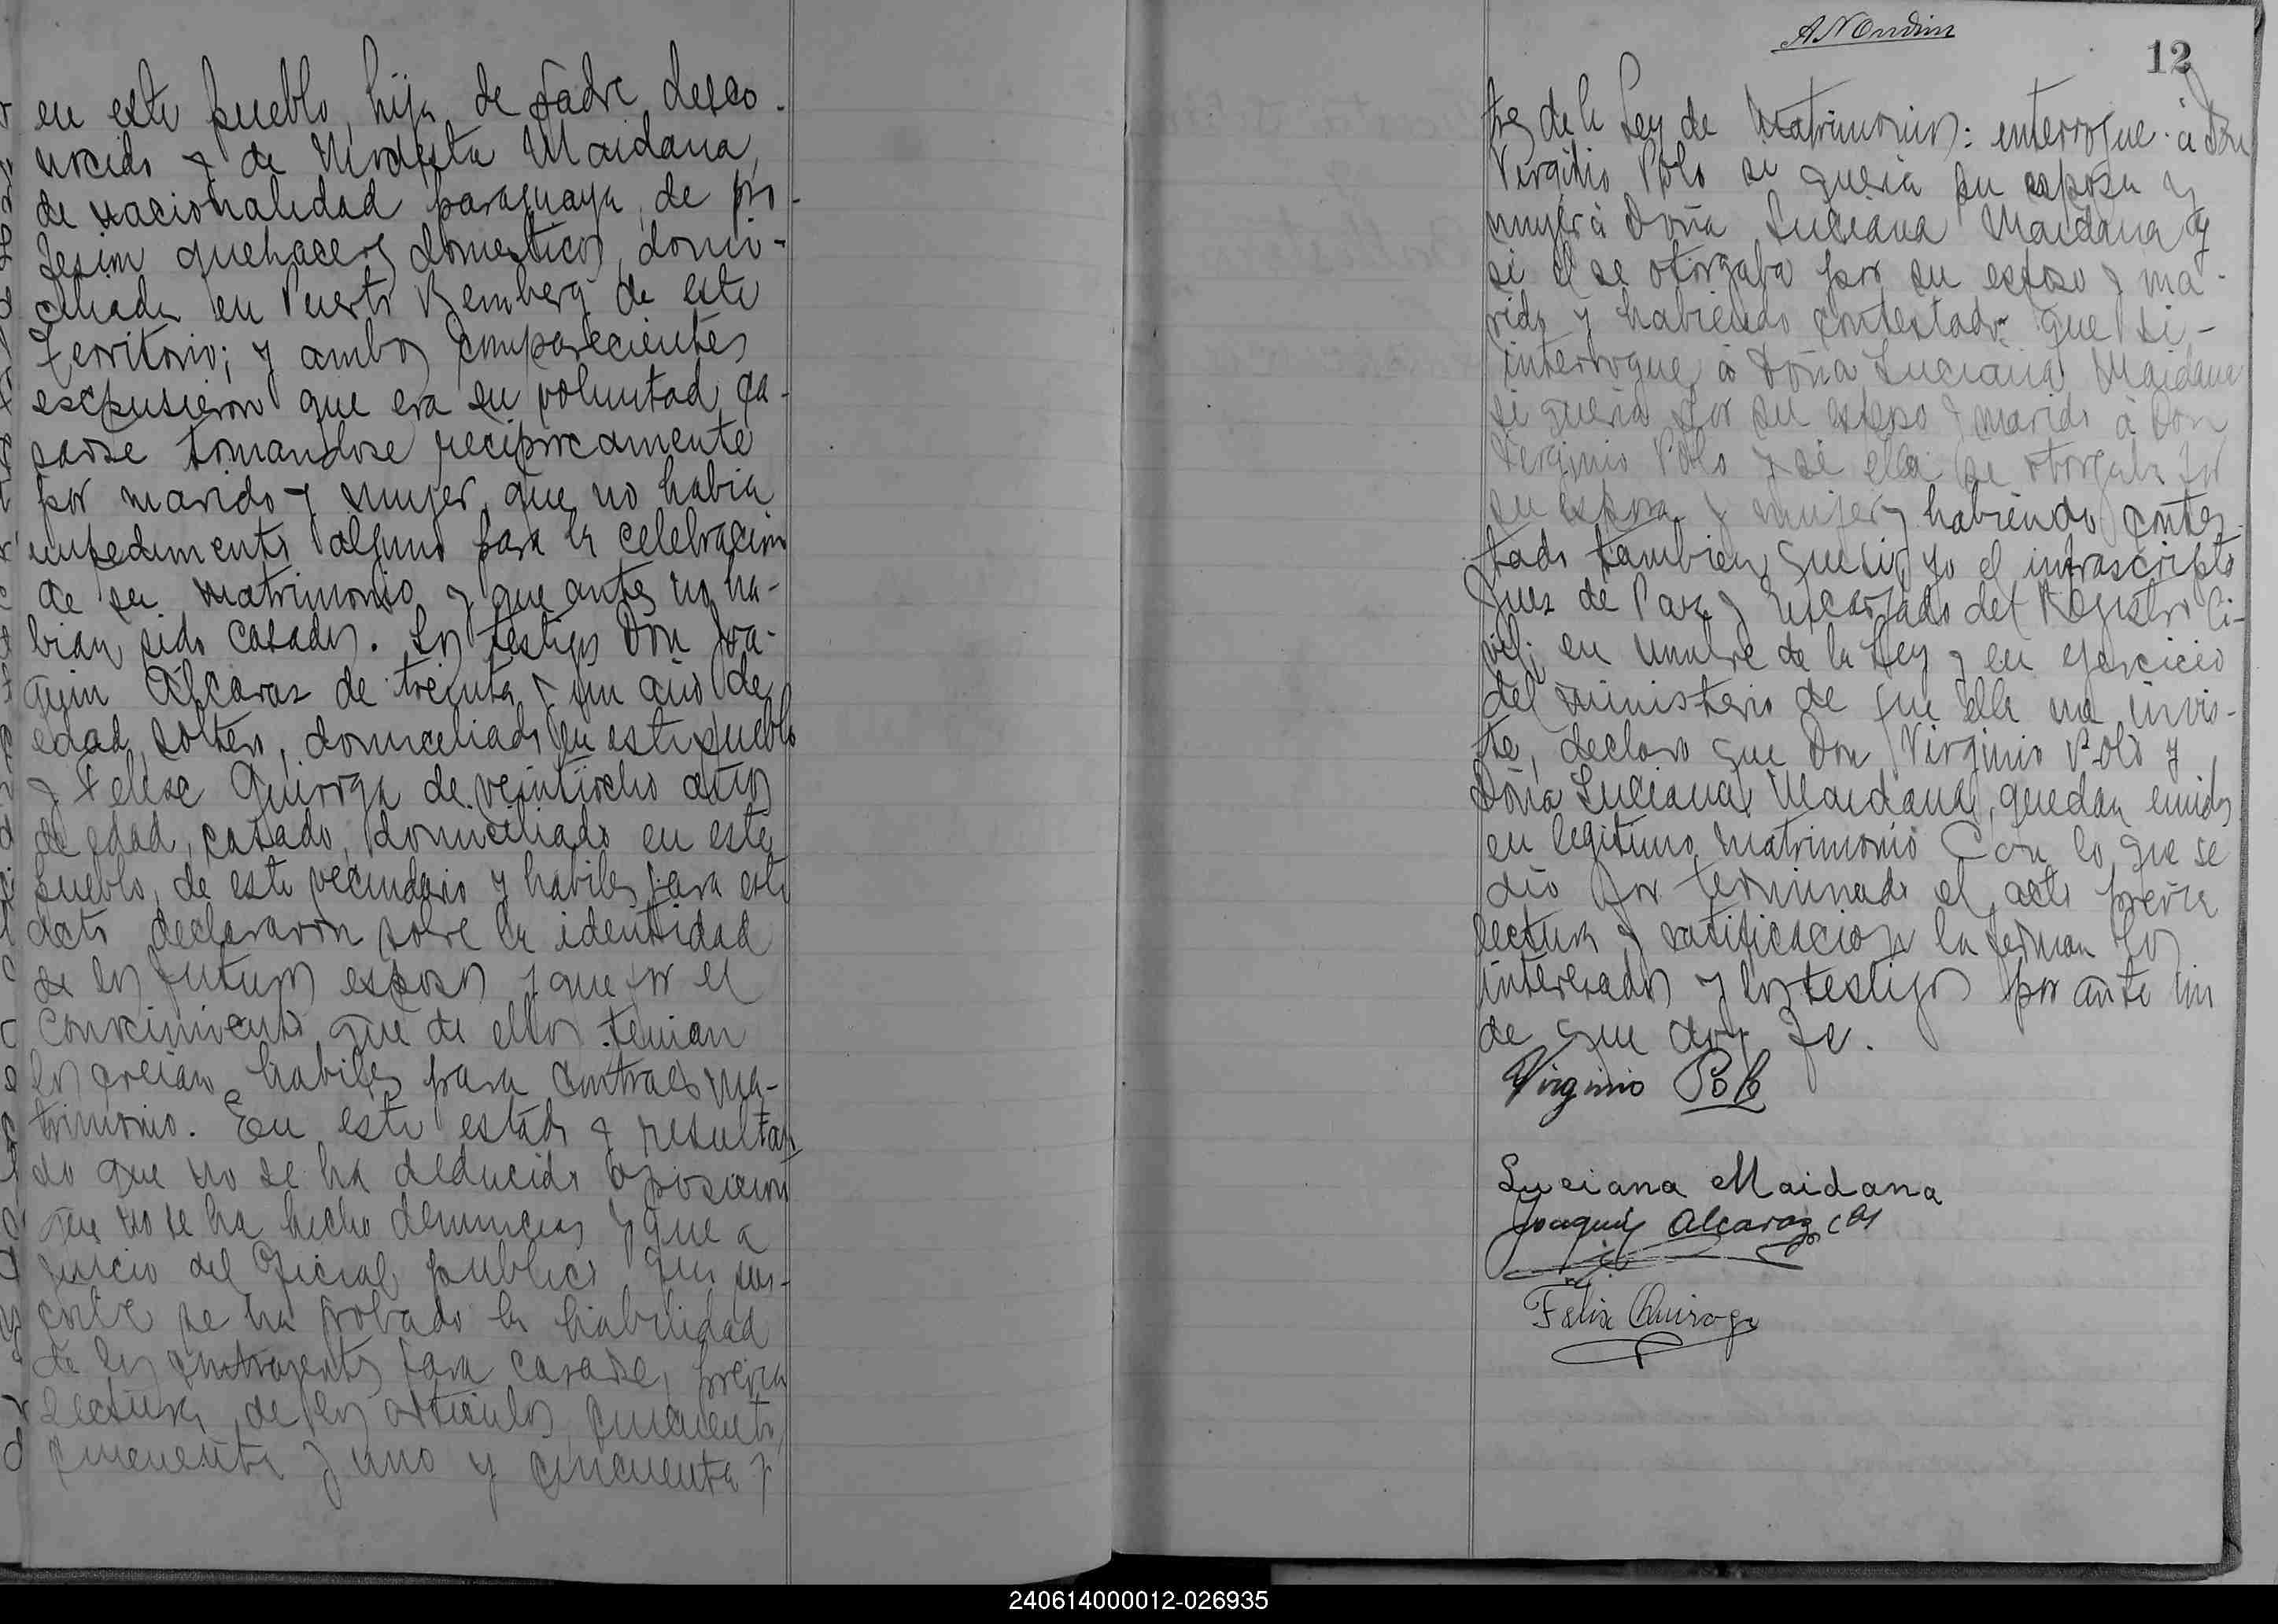 en este pueblo, hija de padre desco-
nocido y de Modesta Maidana,
de nacionalidad paraguaya, de pro-
fesion quehaceres domesticos, domi-
ciliada en Puerto Bemberg de este
Territorio; y ambos comparecientes
escpusieron que era su voluntad ca-
sarse tomandose reciprocamente
por marido y mujer, que no habia
impedimento alguno para la celebracion
de su matrimonio y que antes no ha-
bian sido casados. Los testigos Don Joa-
quin Alcaraz de treinta y un año de
edad, soltero, domiciliado en este pueblo
y Felise Quiroga de veintiocho años
de edad, casado, domiciliado en este
pueblo, de este vecindario y habiles para este
acto declararon sobre la identidad
de los futuros esposos y que por el
conocimiento que de ellos tenian
los creian habiles para contraer ma-
trimonio. En este estado y resultan
do que no se ha deducido oposicion
que no se ha hecho denuncias y que a
juicio del Oficial publico que sus-
cribe se ha probado la habilidad
de los contrayentes para casarse, previa
lectura de los articulos cincuenta,
cincuenta y uno y cincuenta y
12
tres de la Ley de Matrimonio: interrogue á Don
Virginio Polo si queria su esposa y
mujer á Doña Luciana Maidana y
si el se otorgaba por su esposo y ma-
rido y habiendo contestado que si-
interrogue á Doña Luciana Maidana
si queria por su esposo y marido á Don
Virginio Polo y si ella se otorgaba por
su esposa y mujer y habiendo contes
tado tambien que si, yo el infrascripto
Juez de Paz y Encargado del Registro Ci-
vil; en nombre de la Ley y en ejercicio
del ministerio de que ella me invis-
te, declaro que Don Virginio Polo y
Doña Luciana Maidana, quedan unidos
en legitimo matrimonio Con lo que se
dio por terminado el acto previa
lectura y ratificacion la firman los
interesados y los testigos por ante mi
de que doy fe.
Virginio Polo
Luciana Maidana
Joaquin Alcaraz
Felix Quiroga
240614000012-026935